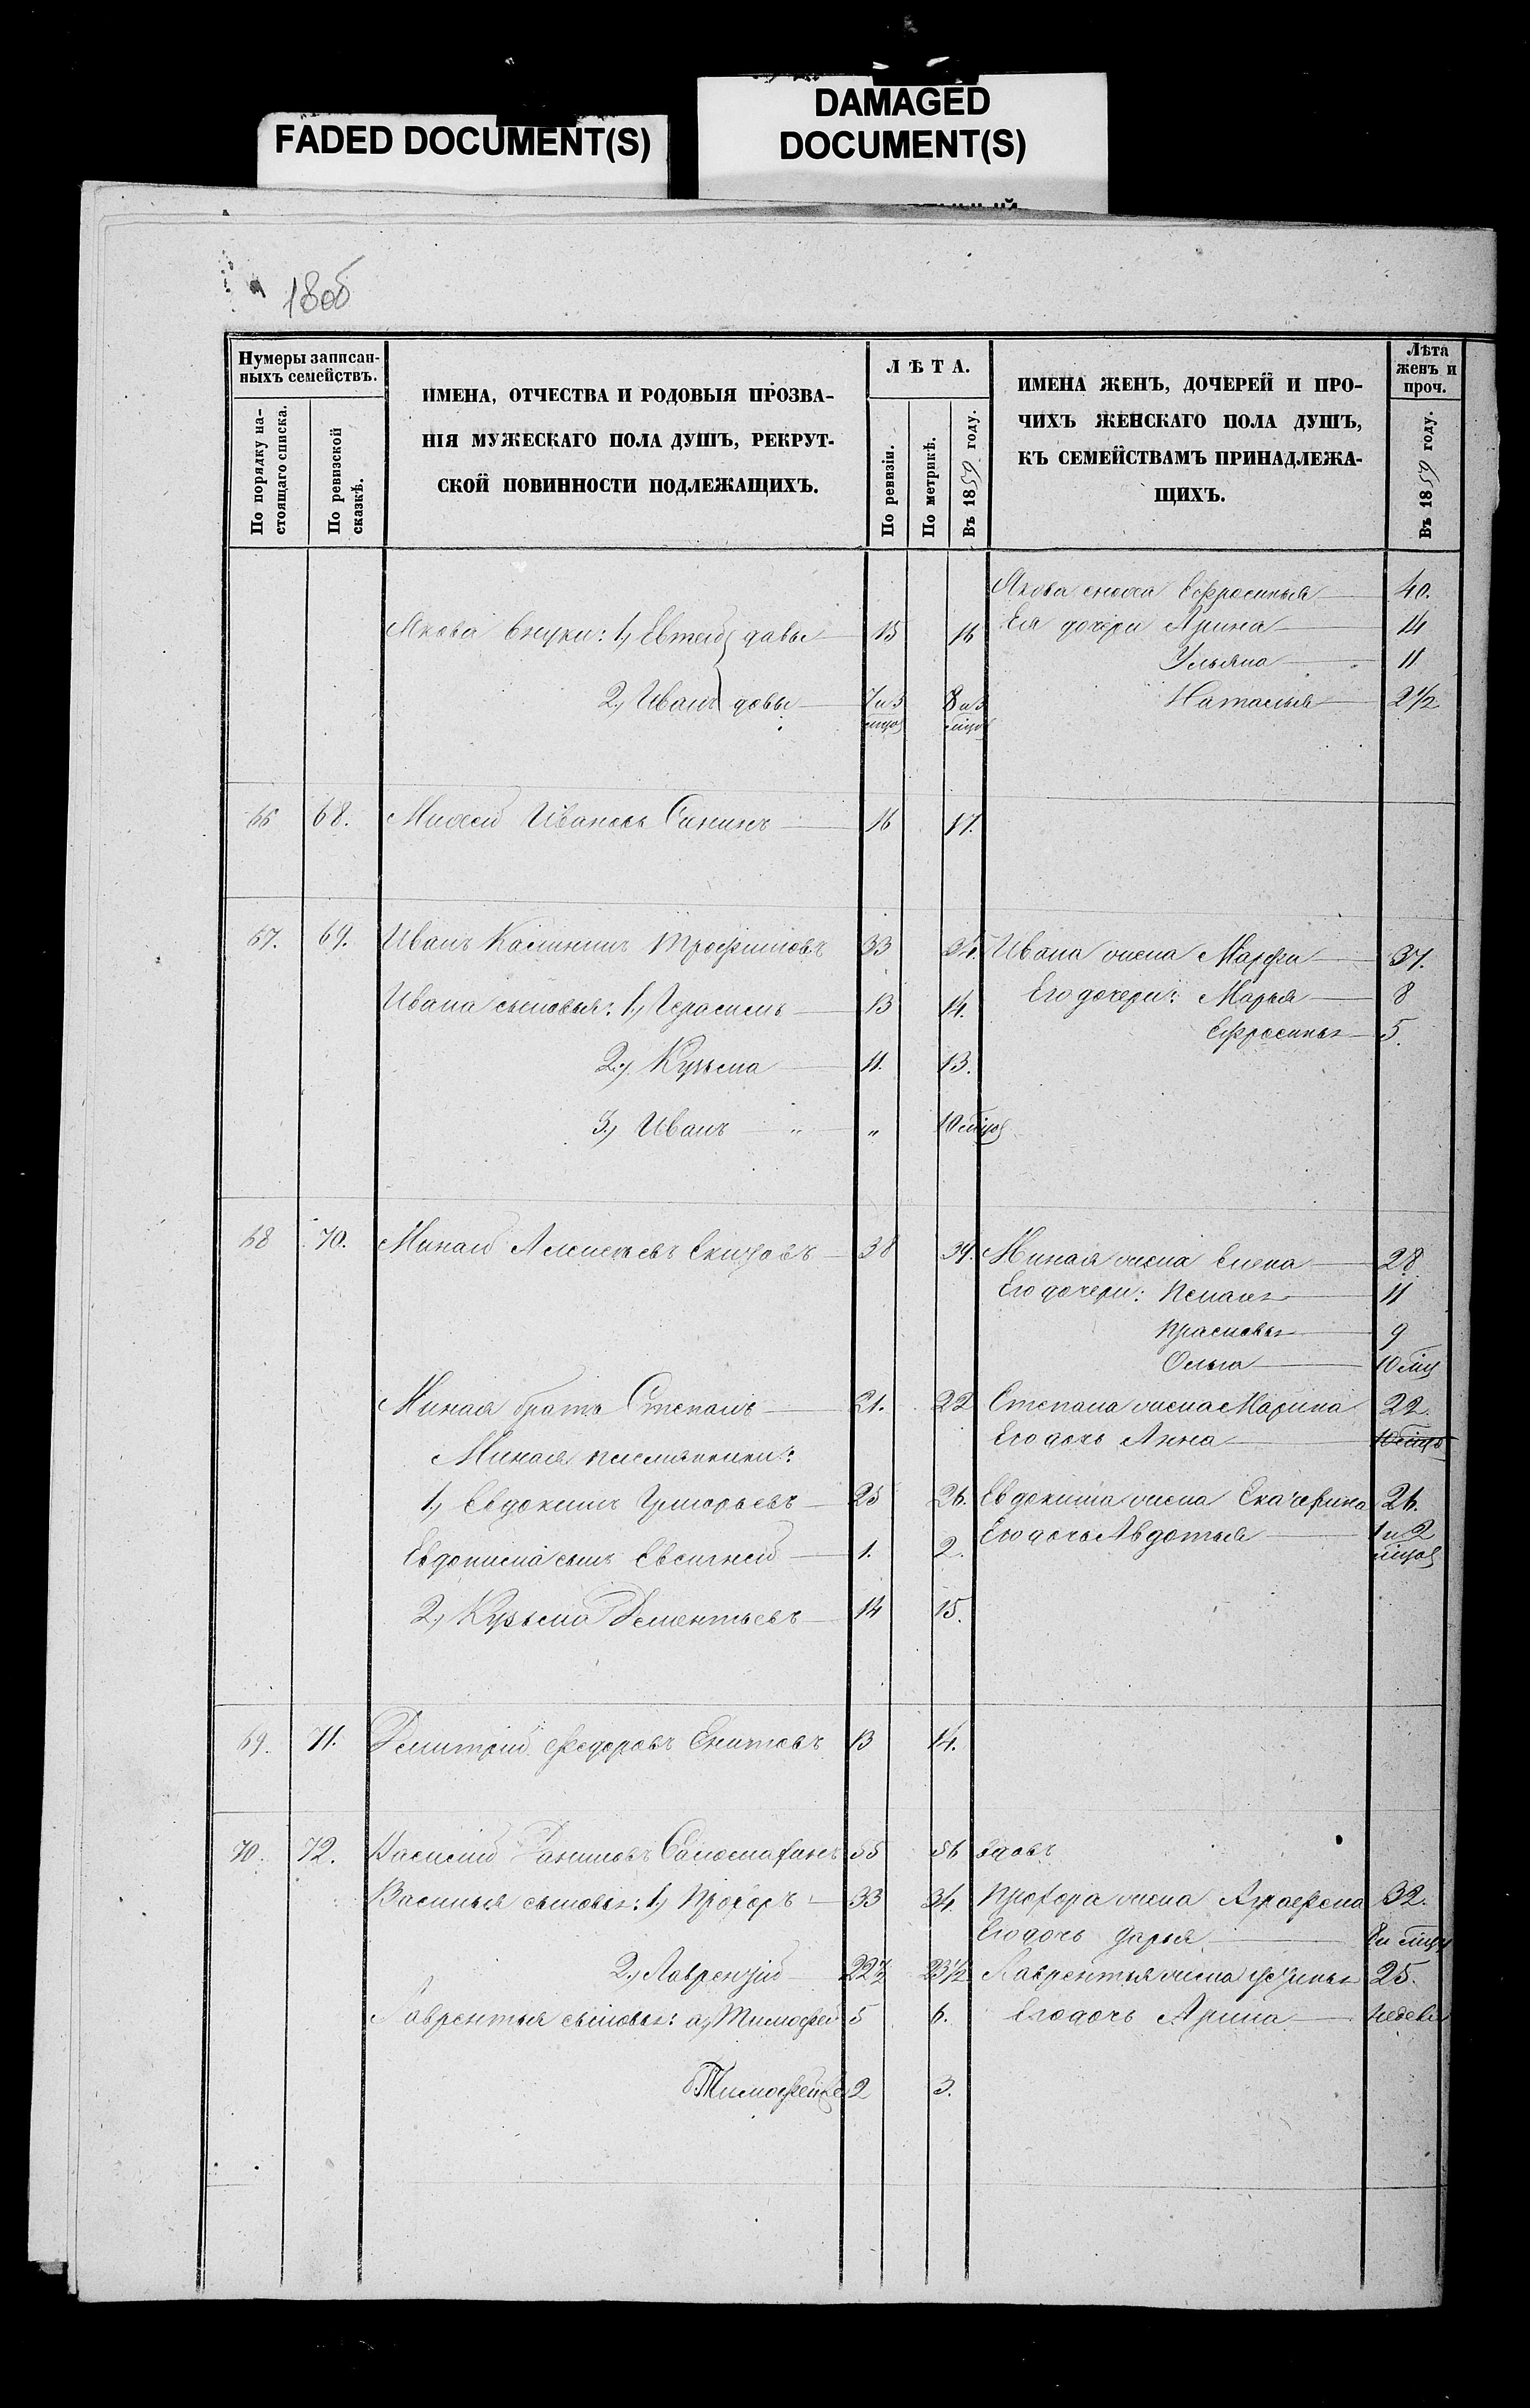 FADED DOCUMENT(S)
DAMAGED
DOCUMENT(S)
180б
Нумеры записан-
ныхъ семействъ.
По порядку на-
стоящаго списка.
По ревизской
сказкѣ.
ИМЕНА, ОТЧЕСТВА И РОДОВЫЯ ПРОЗВА-
НІЯ МУЖЕСКАГО ПОЛА ДУШЪ, РЕКРУТ-
СКОЙ ПОВИННОСТИ ПОДЛЕЖАЩИХЪ.
ЛѢТА.
По ревизіи.
По метрикѣ.
Въ 1859 году.
ИМЕНА ЖЕНЪ, ДОЧЕРЕЙ И ПРО-
ЧИХЪ ЖЕНСКАГО ПОЛА ДУШЪ,
КЪ СЕМЕЙСТВАМЪ ПРИНАДЛЕЖА-
ЩИХЪ.
Лѣта
женъ и
проч.
Въ 1859 году.
Якова сноха Ефросинья 40.
Якова внуки: 1, Евтей 15 16 Ея дочери Арина 14
Ульяна 11
2, Иванъ 7 и 3 8 и 3 Наталья 2 1/2
мцов мцов
66 68. Михей Ивановъ Сининъ 16 17.
67. 69. Иванъ Калининъ Трофимовъ 33 34. Ивана жена Марфа 37.
Ивана сыновья: 1, Герасимъ 13 14. Его дочери: Марья 8
Ефросинья 5.
2, Кузьма 11. 13.
3, Иванъ „ „ 10 мцов
68 70. Минай Алексѣевъ 38 39. Миная жена Елена 28.
Его дочери: Пелагея 11
Прасковья 9
Ольга 10 мц
Миная братъ Степанъ 21. 22 Степана жена Марина 22.
Его дочь Анна 10 мцов
Миная племянники:
1, Евдокимъ Григорьевъ 25 26. Евдокима жена Екатерина 26.
Его дочь Авдотья 1 и 2
мцов
Евдокима сынъ Евсигней 1. 2.
2, Кузьма Дементьевъ 14 15.
69. 71. Дмитрій Федоровъ 13 14.
70. 72. Василій Даниловъ 55 56 вдовъ
Василья сыновья: 1, Прохоръ 33 34. Прохора жена Аграфена 32.
Его дочь Дарья 8 мцов
2, Лаврентій 22 1/2 23 1/2 Лаврентья жена Устинья 25.
Лаврентья сыновья: а, Тимофей 5 6. Его дочь Арина недель
б Тимофей 2 3.